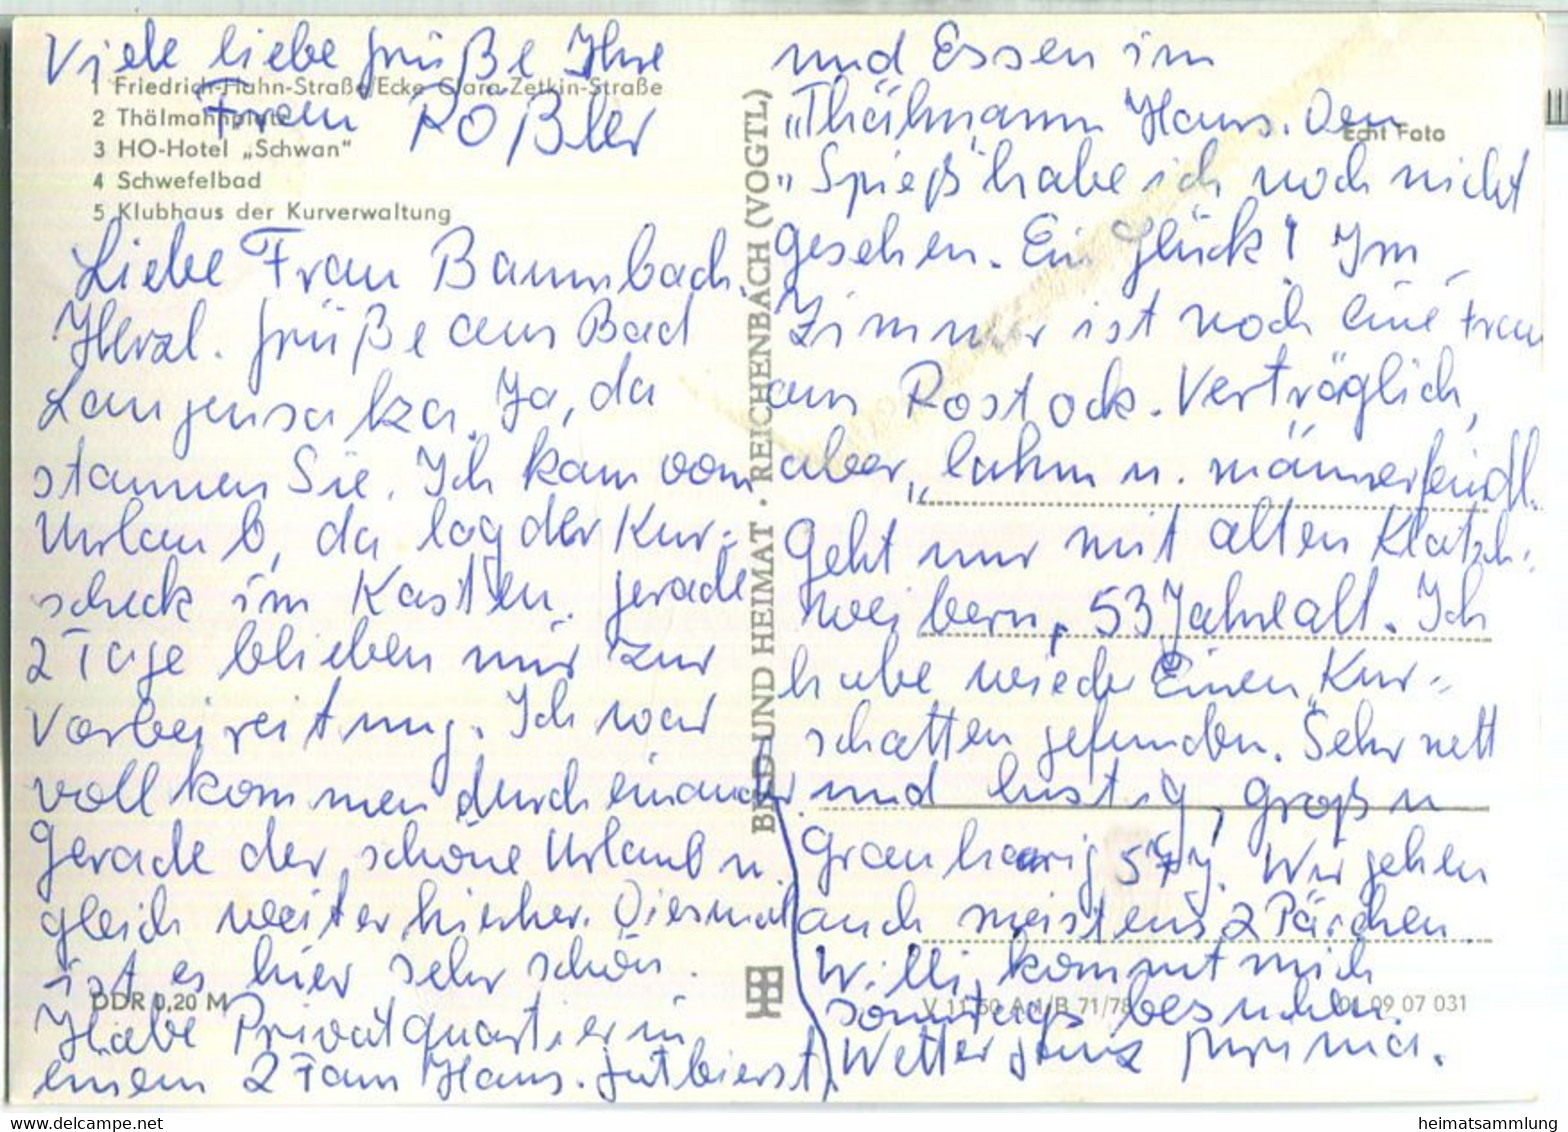 Viele liebe Grüße Ihre
Frau Rößler
1 Friedrich-Hahn-Straße/Ecke Clara-Zetkin-Straße
2 Thälmannplatz
3 HO-Hotel „Schwan“
4 Schwefelbad
5 Klubhaus der Kurverwaltung
Liebe Frau Baumbach.
Herzl. Grüße aus Bad
Langensalza. Ja, da
staunen Sie. Ich kam vom
Urlaub, da lag der Kur-
scheck im Kasten. Gerade
2 Tage blieben mir zur
Vorbereitung. Ich war
vollkommen durcheinander.
Gerade der schöne Urlaub u.
gleich weiter hierher. Diesmal
ist es hier sehr schön.
Habe Privatquartier in
einem 2 Fam Haus.
DDR 0,20 M
BILD UND HEIMAT · REICHENBACH (VOGTL)
und Essen im
„Thälmann Haus. Den
„Spieß“ habe ich noch nicht
gesehen. Ein Glück! Im
Zimmer ist noch eine Frau
aus Rostock. Verträglich,
aber „lahm u. männerfeindl.
Geht nur mit alten Klatsch-
weibern, 53 Jahre alt. Ich
habe wieder Einen Kur-
schatten gefunden. Sehr nett
und lustig, groß u
grauhaarig 57 J. Wir gehen
auch meistens 2 Pärchen.
Willi, kommt mich
sonntags besuchen.
Wetter ganz prima.
Echt Foto
V 11 50 A 1/B 71/78
01 09 07 031
delcampe.net
heimatsammlung